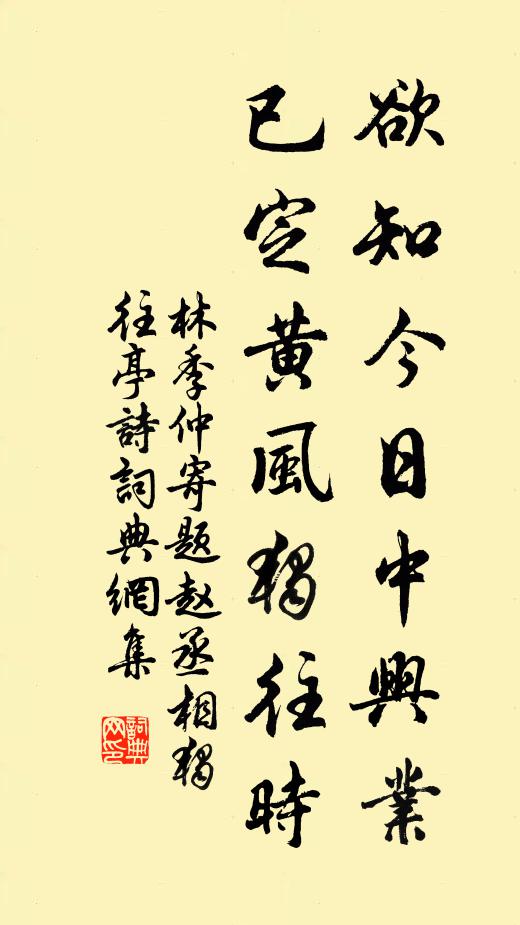 欲知今日中興業
已定黄風獨往時
林季仲寄题赵丞相獨
往亭詩詞典網集
詞典
网印